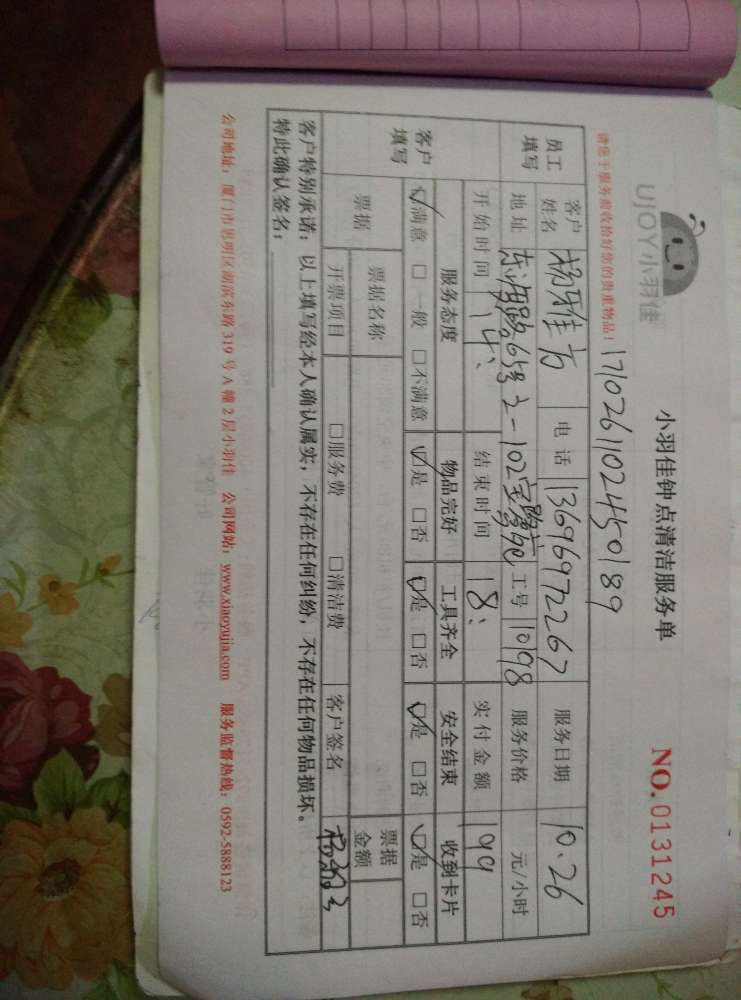 UJOY小羽佳
小羽佳钟点清洁服务单
NO.0131245
请您于服务前收拾好您的贵重物品！
1710261102450189
员工填写 客户姓名 杨雅 电话 13696972267 服务日期 10.26
地址 东浦路65号2-102 工号 1098 服务价格 元/小时
开始时间 14: 结束时间 18: 实付金额 199
客户填写 服务态度 物品完好 工具齐全 安全结束 收到卡片
☑满意 □一般 □不满意 ☑是 □否 ☑是 □否 ☑是 □否 ☑是 □否
票据 票据名称 票据金额
开票项目 □服务费 □清洁费 客户签名
客户特别承诺：以上填写经本人确认属实，不存在任何纠纷，不存在任何物品损坏。
特此确认签名：
公司地址：厦门市思明区湖滨东路319号A幢2层小羽佳 公司网站：www.xiaoyujia.com 服务监督热线：0592-5888123